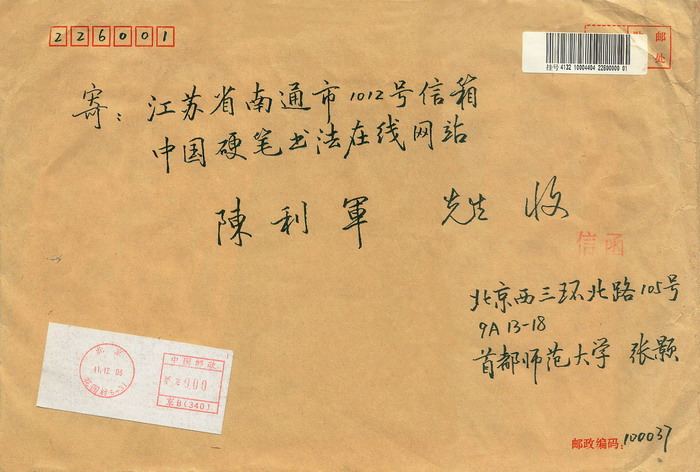 226001
邮
处
挂号 4132 10004404 22600000 01
寄：江苏省南通市1012号信箱
中国硬笔书法在线网站
陳利軍 先生 收
信函
北京西三环北路105号
9A13-18
首都师范大学 张颢
北京
中国邮政
京B(340)
邮政编码：100037